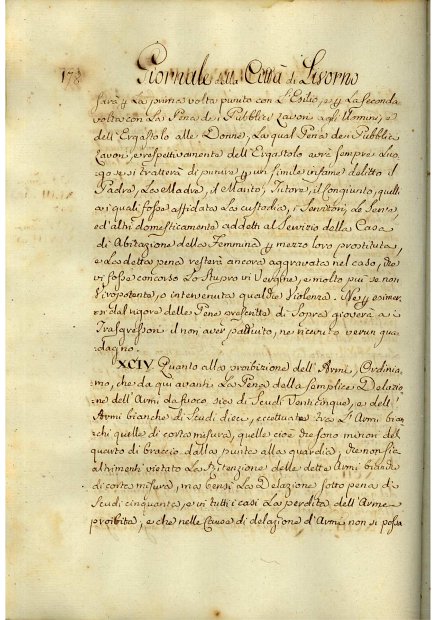 178 Giornale della Città di Livorno
sarà p̱ la prima volta punito con l'Esilio, e p̱ la seconda
volta con la Pena dei Pubblici Lavori agli Uomini, e
dell'Ergastolo alle Donne, la qual Pena dei Pubblici
Lavori, e respettivamente dell'Ergastolo avrà sempre luo,
go se si tratterà di punire p̱ un simile infame delitto il
Padre, la Madre, il Marito, Tutore, il Congiunto, quelli
a i quali fosse affidata la custodia, i Servitori, le Serve
ed altri domesticamente addetti al Servizio della Casa
di Abitazione della Femmina p̱ mezzo loro prostituta,
e la detta pena resterà ancora aggravata nel caso, che
vi fosse concorso lo Stupro in Vergine, e molto più se non
Viripotente, o intervenuta qualche Violenza. Ne p̱ esimer,
si dal rigore delle Pene prescritte di Sopra gioverà a i
Trasgressori il non aver pattuito, ne ricevuto verun gua,
dagno.
XCIV. Quanto alla proibizione dell'Armi, Ordinia,
mo, che da qui avanti la Pena della semplice Delazio,
ne dell'Armi da fuoco sia di Scudi Venticinque, e dell'
Armi bianche di Scudi dieci, eccettuate tra l'Armi bian,
chi quelle di corta misura, quelle cioè che sono minori del
quarto di braccio dalla punta alla guardia, che non sia
altrimenti vietato la Ritenzione delle dette Armi bianche
di corta misura, ma bensì la Delazione sotto pena di
Scudi cinquanta, e in tutti i casi la perdita dell'Arme
proibita, e che nelle Cause di delazione d'Armi non si possa